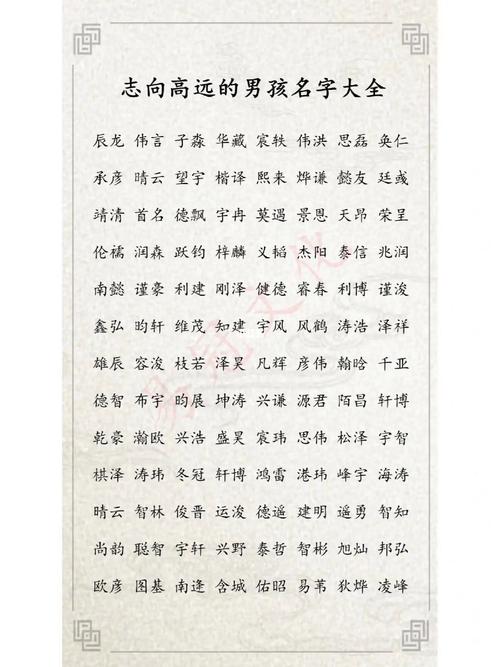 志向高远的男孩名字大全
辰龙 伟言 子淼 华藏 宸轶 伟洪 思磊 奂仁
承彦 晴云 望宇 楷译 熙来 烨谦 懿友 廷彧
靖清 首名 德飘 宇冉 莫遇 景恩 天昂 荣呈
伦襦 润森 跃钧 梓麟 义韬 杰阳 泰信 兆润
南懿 谨豪 利建 刚泽 健德 睿春 利博 谨浚
鑫弘 昀轩 维茂 知建 宇风 风鹤 涛浩 泽祥
雄辰 容浚 枝若 泽昊 凡辉 彦伟 翰晗 千亚
德智 布宇 昀展 坤涛 兴谦 源君 陌昌 轩博
乾豪 瀚欧 兴浩 盛昊 宸玮 思伟 松泽 宇智
棋泽 涛玮 冬冠 轩博 鸿雷 港玮 峰宇 海涛
晴云 智林 俊晋 运浚 德遥 建明 遥勇 智知
尚韵 聪智 宇轩 兴野 泰哲 智彬 旭灿 邦弘
欧彦 图基 南逢 含城 佑昭 易苇 狄烨 凌峰